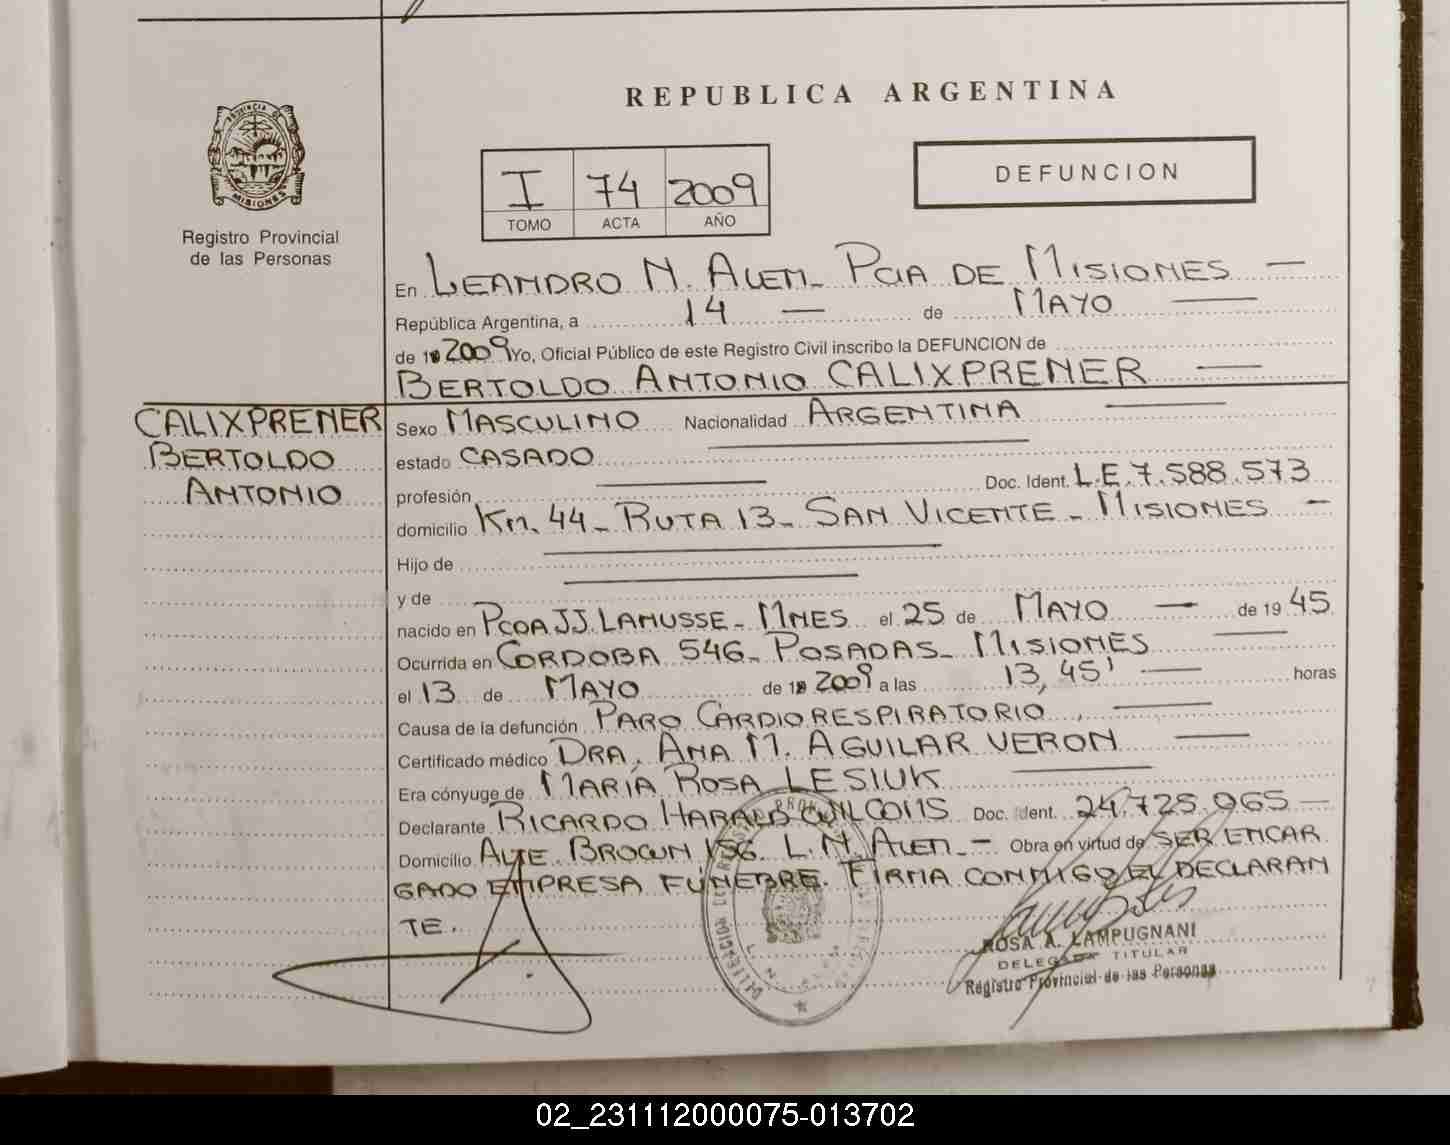 REPUBLICA ARGENTINA
PROVINCIA DE
MISIONES
Registro Provincial
de las Personas
I 74 2009
TOMO ACTA AÑO
DEFUNCION
En LEANDRO N. ALEM_ PCIA DE MISIONES —
República Argentina, a 14 — de MAYO —
de 2009 Yo, Oficial Público de este Registro Civil inscribo la DEFUNCION de
BERTOLDO ANTONIO CALIXPRENER —
CALIXPRENER
BERTOLDO
ANTONIO
Sexo MASCULINO Nacionalidad ARGENTINA —
estado CASADO —
profesión — Doc. Ident. L.E.7.588.573
domicilio Km. 44_ RUTA 13_ SAN VICENTE_ MISIONES —
Hijo de —
y de —
nacido en PCOA J.J. LANUSSE_ MNES el 25 de MAYO — de 19 45
Ocurrida en CORDOBA 546_ POSADAS_ MISIONES —
el 13 de MAYO de 2009 a las 13,45' — horas
Causa de la defunción PARO CARDIORESPIRATORIO —
Certificado médico DRA. ANA M. AGUILAR VERON —
Era cónyuge de MARIA ROSA LESIUK —
Declarante RICARDO HARALD Doc. Ident. 24.725.965 —
Domicilio ALTE. BROWN 156. L.N. ALEM_— Obra en virtud de SER ENCAR
GADO EMPRESA FUNEBRE. FIRMA CONMIGO EL DECLARAN
TE.
ROSA A. LAMPUGNANI
DELEGADA TITULAR
Registro Provincial de las Personas
02_231112000075-013702